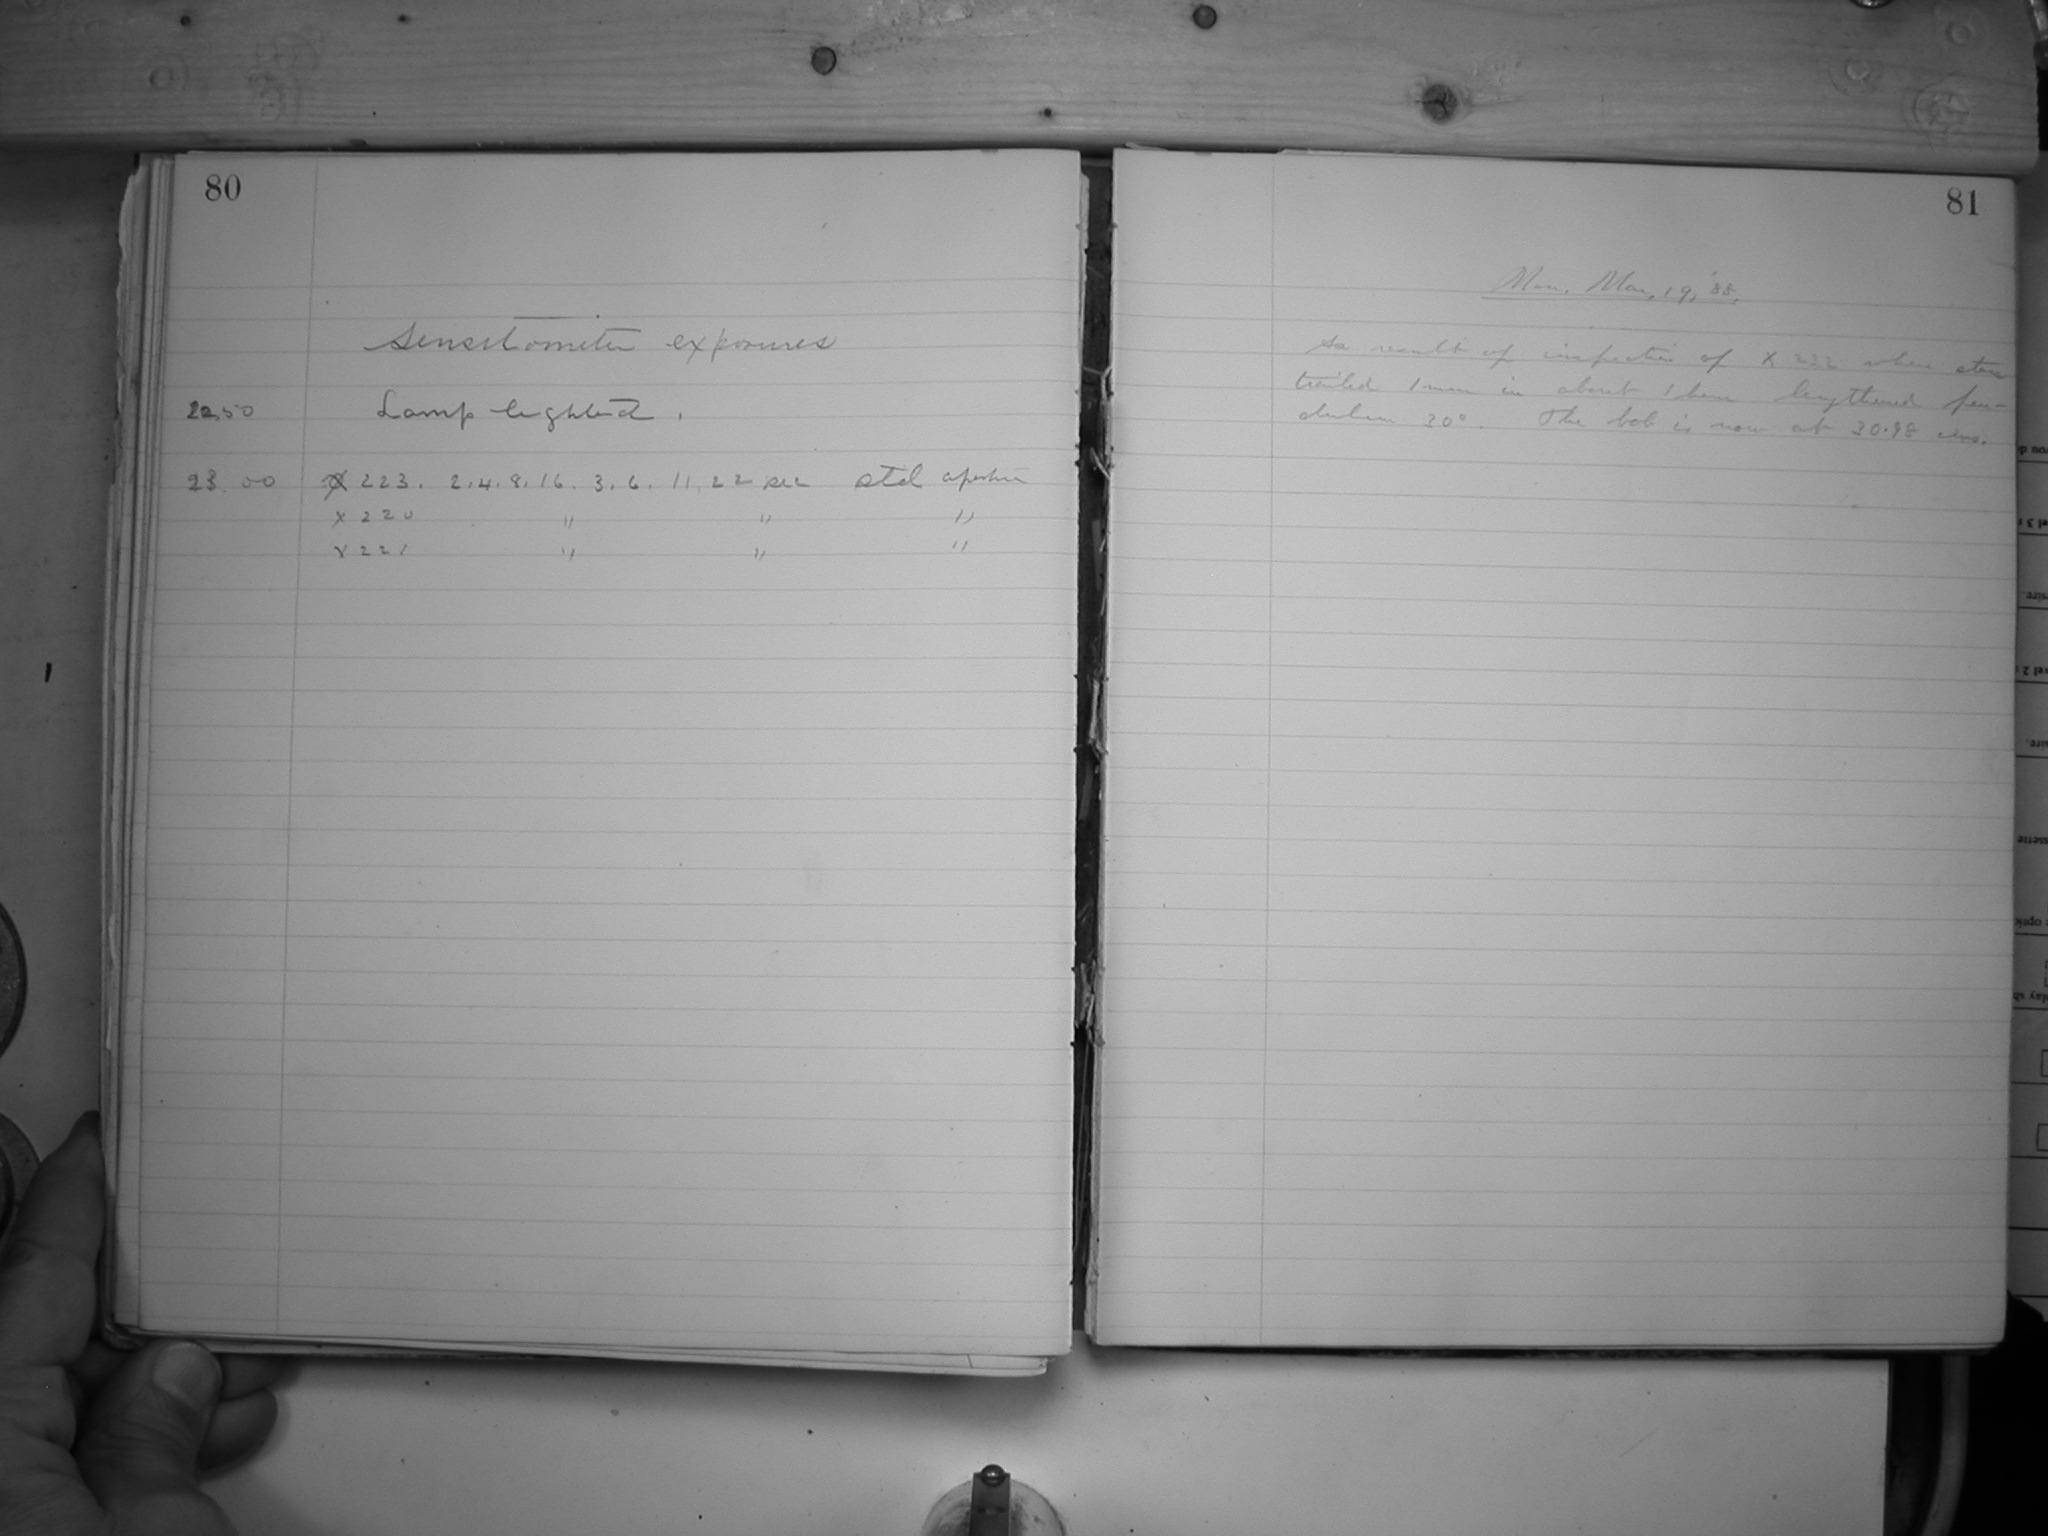 80
Sensitometer exposures
22.50 Lamp lighted.
23.00 X 223. 2.4.8.16. 3.6. 11.22 sec std aperture
X 220 " " "
X 221 " " "
81
Mon. Mar. 19, '88.
As result of inspection of X 222 where stars
trailed 1 mm in about 1 hour lengthened pen-
dulum 30°. The bob is now at 30.98 cms.